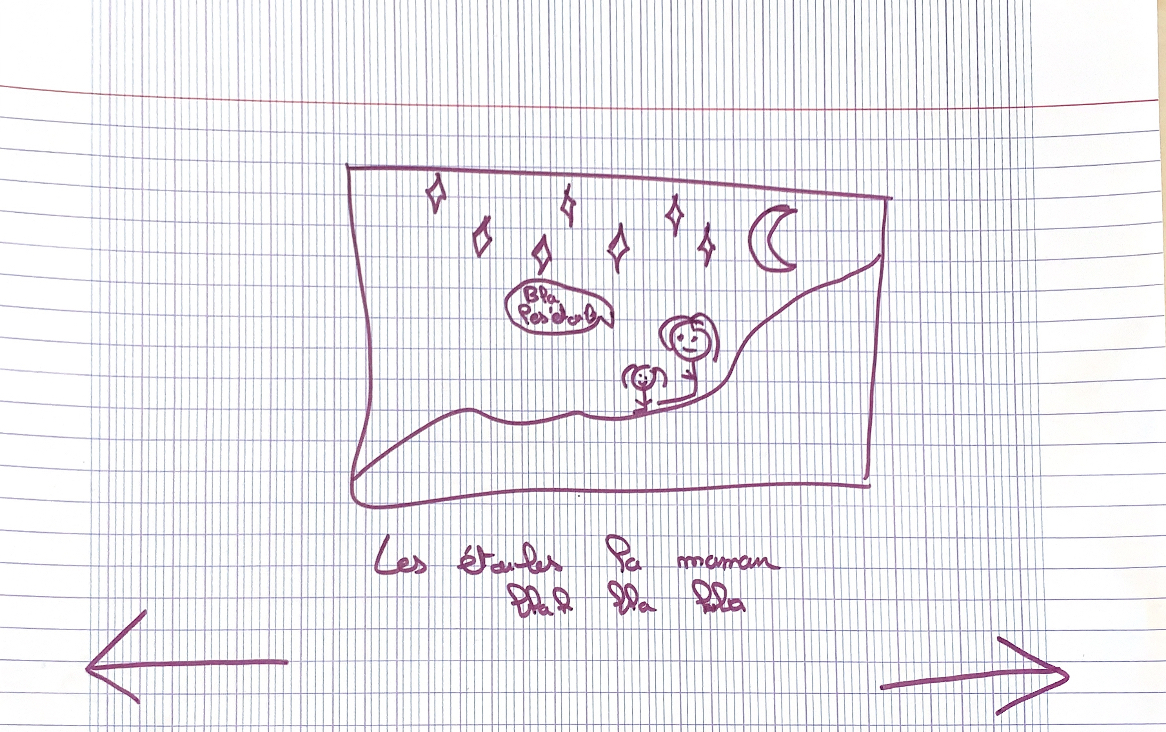 Bla
les étoiles
Les étoiles la maman
blab bla bla